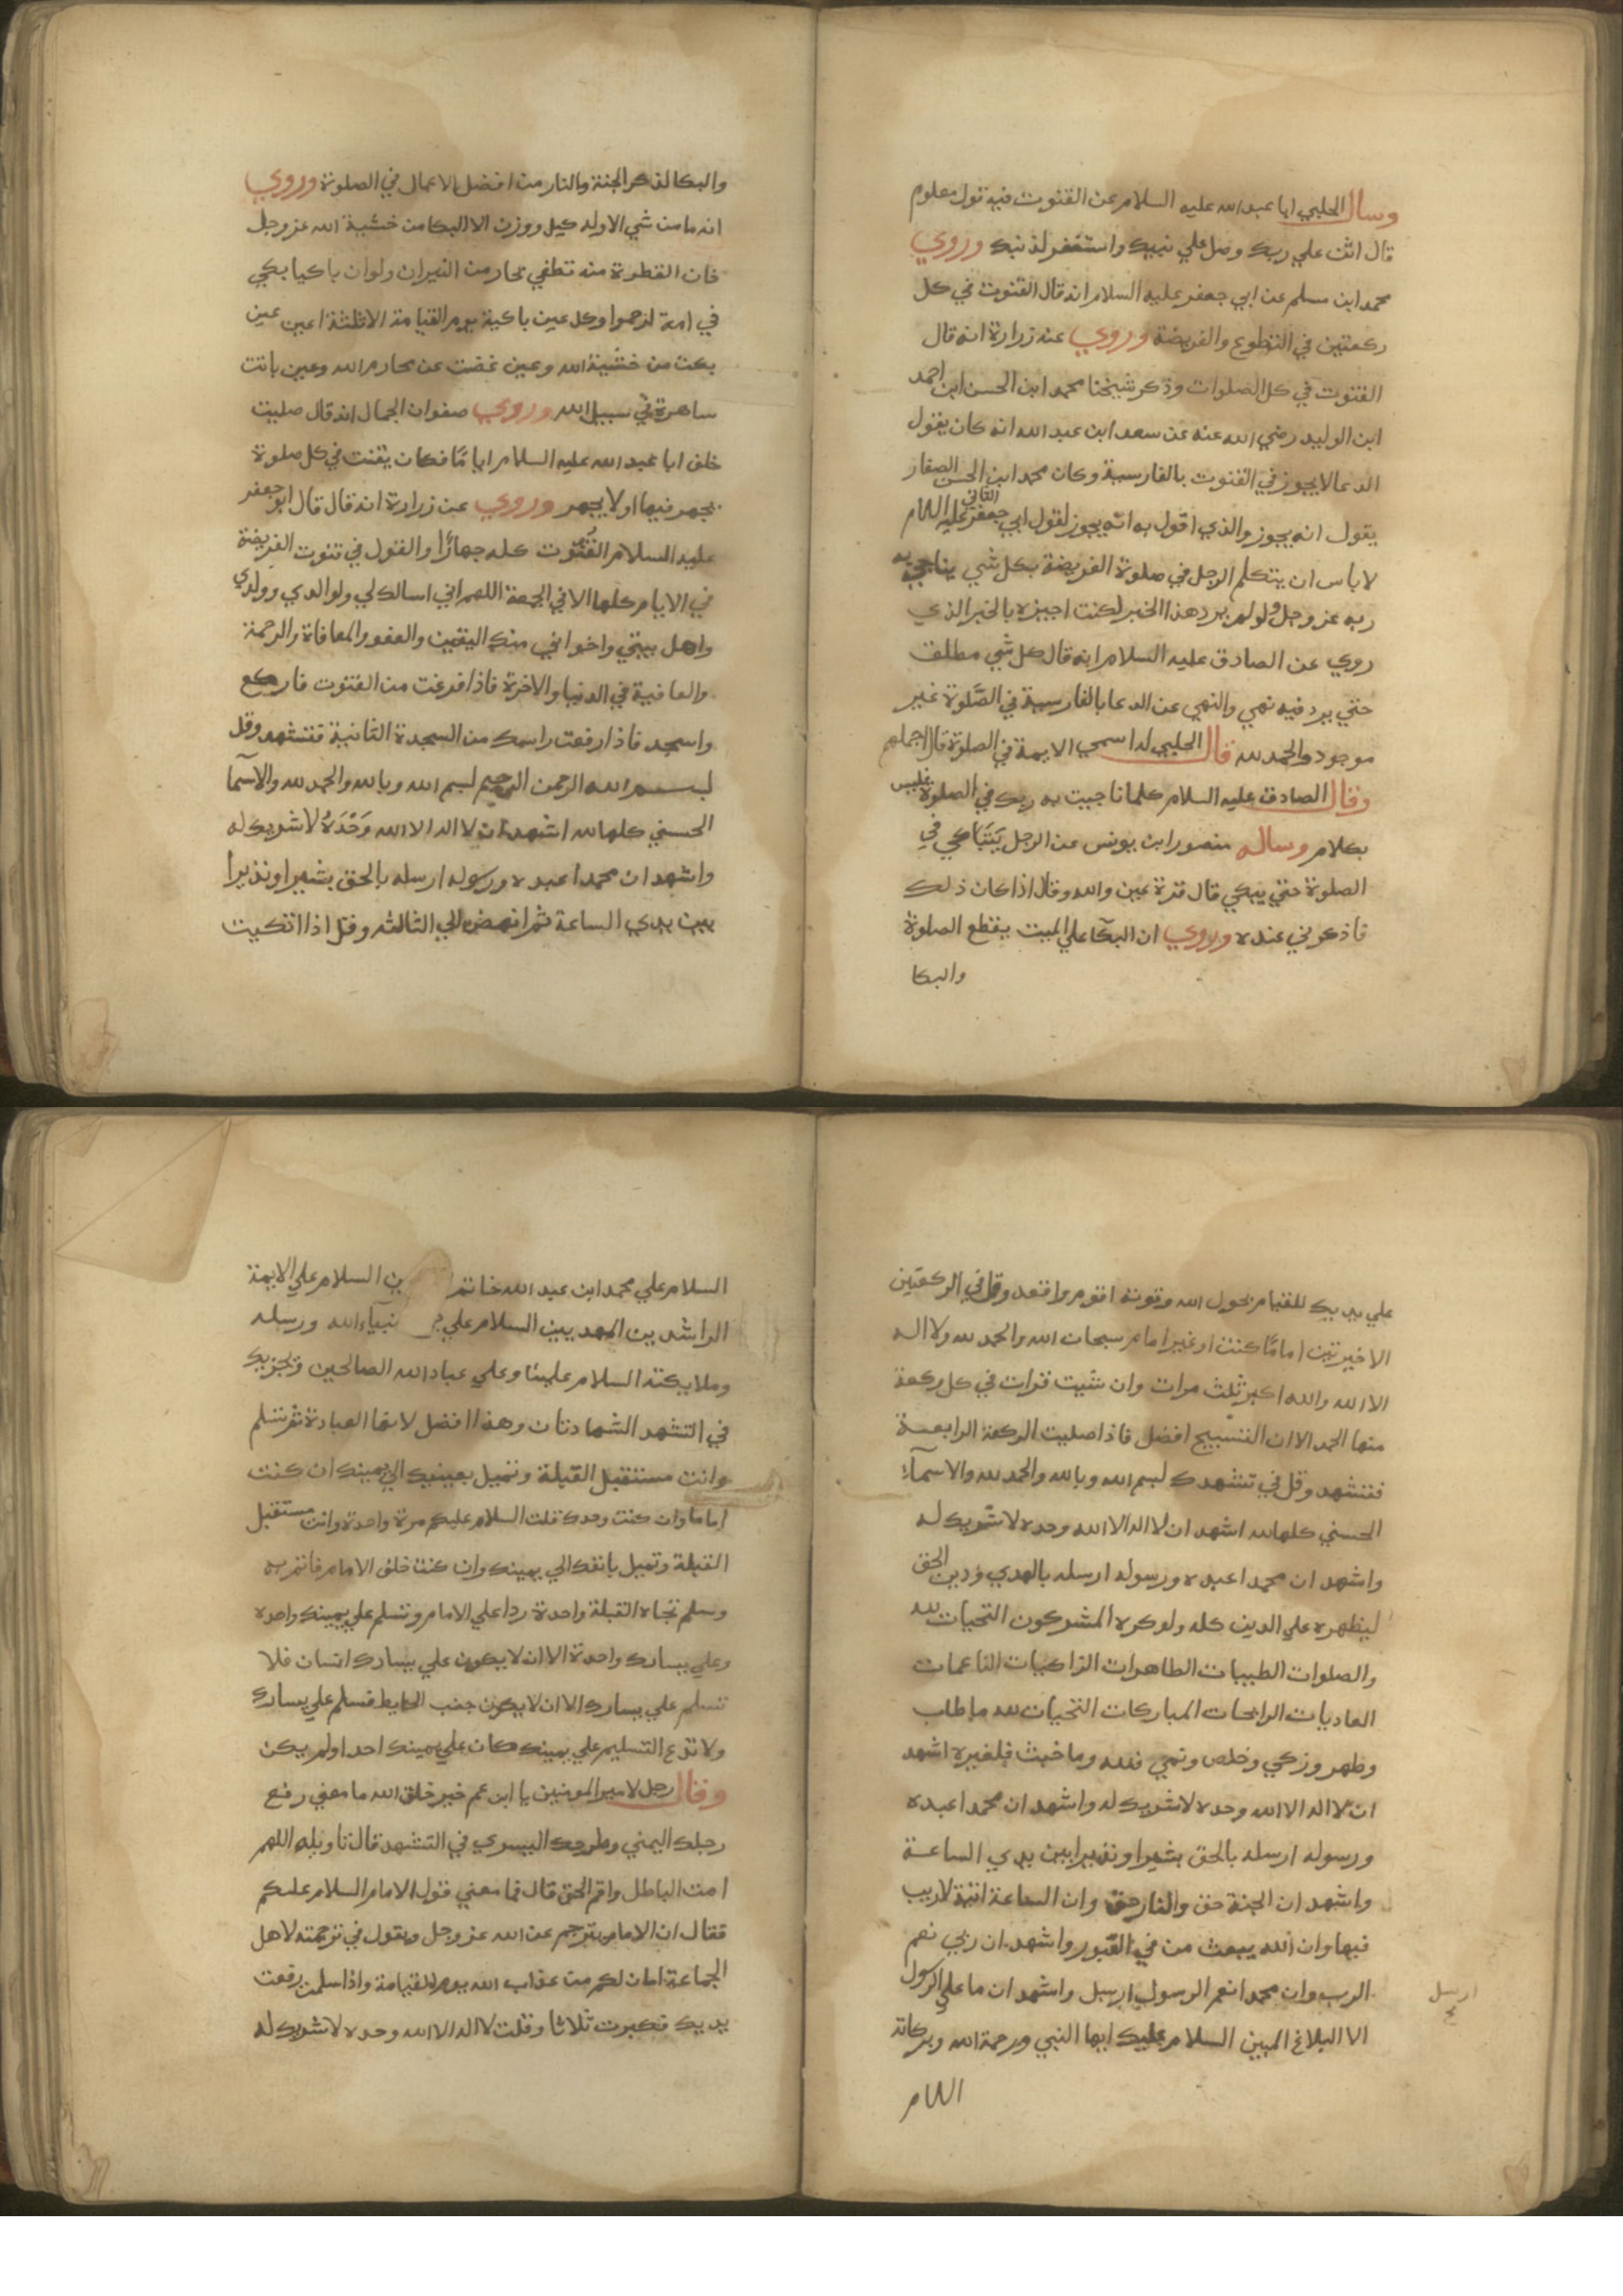 وسال الحلبي ابا عبد الله عليه السلام عن القنوت فيه قول معلوم
قال اثن علي ربك وصل علي نبيك واستغفر لذنبك وروي
محمد ابن مسلم عن ابي جعفر عليه السلام انه قال القنوت في كل
ركعتين في التطوع والفريضة وروي عنه زرارة انه قال
القنوت في كل الصلوات وذكر شيخنا محمد ابن الحسن ابن احمد
ابن الوليد رضي الله عنه عن سعد ابن عبد الله انه كان يقول
الدعا لا يجوز في القنوت بالفارسية وكان محمد ابن الحسن الصفار
يقول انه يجوز والذي اقول به انه يجوز لقول ابي جعفر الثاني عليه السلام
لا باس ان يتكلم الرجل في صلوة الفريضة بكل شي يناجي به
ربه عز وجل ولو لم يرد هذا الخبر لكنت اجيزه بالخبر الذي
روي عن الصادق عليه السلام انه قال كل شي مطلق
حتي يرد فيه نهي والنهي عن الدعا بالفارسية في الصلوة غير
موجود والحمد لله قال الحلبي له اسمي الايمة في الصلوة قال اجملهم
وقال الصادق عليه السلام كلما ناجيت به ربك في الصلوة فليس
بكلام وساله منصور ابن يونس عن الرجل يتباكي في
الصلوة حتي يبكي قال قرة عين والله وقال اذا كان ذلك
فاذكرني عنده وروي ان البكآ علي الميت يقطع الصلوة
والبكا
والبكا لذكر الجنة والنار من افضل الاعمال في الصلوة وروي
انه ما من شي الا وله كيل ووزن الا البكا من خشية الله عز وجل
فان القطرة منه تطفي بحار من النيران ولو ان باكيا بكي
في امة لرحموا وكل عين باكية يوم القيامة الا ثلثة اعين عين
بكت من خشية الله وعين غضت عن محارم الله وعين باتت
ساهرة في سبيل الله وروي صفوان الجمال انه قال صليت
خلف ابا عبد الله عليه السلام اياما فكان يقنت في كل صلوة
يجهر فيها او لا يجهر وروي عن زرارة انه قال قال ابو جعفر
عليه السلام القنوت كله جهارًا والقول في قنوت الفريضة
في الايام كلها الا في الجمعة اللهم اني اسالك لي ولوالدي وولدي
واهل بيتي واخواني منك اليقين والعفو والمعافاة والرحمة
والعافية في الدنيا والاخرة فاذا فرغت من القنوت فاركع
واسجد فاذا رفعت راسك من السجدة الثانية فتشهد وقل
بسم الله الرحمن الرحيم بسم الله وبالله والحمد لله والاسمآ
الحسني كلها لله اشهد ان لا اله الا الله وَحْدَهُ لا شريك له
واشهد ان محمدا عبده ورسوله ارسله بالحق بشيرا ونذيرا
بين يدي الساعة ثم انهض الي الثالثه وقل اذا اتكيت
علي يديك للقيام بحول الله وقوته اقوم واقعد وقل في الركعتين
الاخيرتين اماما كنت او غير امام سبحان الله والحمد لله ولا اله
الا الله والله اكبر ثلث مرات وان شيت قرات في كل ركعة
منها الحمد الا ان التسبيح افضل فاذا صليت الركعة الرابعة
فتشهد وقل في تشهدك بسم الله وبالله والحمد لله والاسمآء
الحسني كلها لله اشهد ان لا اله الا الله وحده لا شريك له
واشهد ان محمدا عبده ورسوله ارسله بالهدي ودين الحق
ليظهره علي الدين كله ولو كره المشركون التحيات لله
والصلوات الطيبات الطاهرات الزاكيات الناعمات
الغاديات الرايحات المباركات التحيات لله ما طاب
وطهر وزكي وخلص ونمي فلله وما خبث فلغيره اشهد
ان لا اله الا الله وحده لا شريك له واشهد ان محمدا عبده
ورسوله ارسله بالحق بشيرا ونذيرا بين يدي الساعة
واشهد ان الجنة حق والنار حق وان الساعة اتية لا ريب
فيها وان الله يبعث من في القبور واشهد ان ربي نعم
الرب وان محمدا نعم الرسول ارسل واشهد ان ما علي الرسول
ارسل
الا البلاغ المبين السلام عليك ايها النبي ورحمة الله وبركاته
السلام
السلام علي محمد ابن عبد الله خاتم ين السلام علي الايمة
الراشدين المهديين السلام علي نبيآء الله ورسله
وملايكته السلام علينا وعلي عباد الله الصالحين وتجزيك
في التشهد الشهادتان وهذا افضل لانها العبادة ثم تسلم
وانت مستقبل القبلة وتميل بعينيك الي يمينك ان كنت
اماما وان كنت وحدك قلت السلام عليكم مرة واحدة وانت مستقبل
القبلة وتميل بانفك الي يمينك وان كنت خلف الامام فاتم به
وسلم تجاه القبلة واحدة ردا علي الامام وتسلم علي يمينك واحده
وعلي يسارك واحدة الا ان لا يكون علي يسارك انسان فلا
تسلم علي يسارك الا ان لا يكون جنب الحايط فسلم علي يسارك
ولا تدع التسليم علي يمينك كان علي يمينك احد او لم يكن
وقال رجل لامير المومنين يا ابن عم خير خلق الله ما معني رفع
رجلك اليمني وطرحك اليسري في التشهد قال تاويله اللهم
امت الباطل واقم الحق قال فما معني قول الامام السلام عليكم
فقال ان الامام يترجم عن الله عز وجل ويقول في ترجمته لاهل
الجماعة امان لكم من عذاب الله يوم القيامة واذا سلمت رفعت
يديك فكبرت ثلاثا وقلت لا اله الا الله وحده لا شريك له